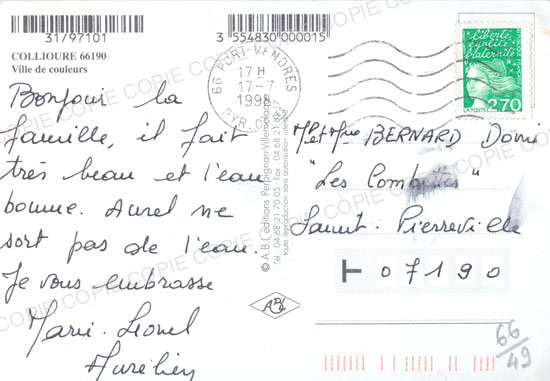 31/97101
3 554830 000015
COLLIOURE 66190
Ville de couleurs
66 PORT-VENDRES
17 H
17-7
1998
PYR. OR.
liberté
égalité
fraternité
LA POSTE
2,70
Bonjour la
famille, il fait
très beau et l'eau
bonne. Aurel ne
sort pas de l'eau.
Je vous embrasse
Marie. Lionel
Aurélien
© A.B.L éditions Perpignan-Villemolaque
Tél. 04 68 21 70 05 - Fax 04 68 21
toute reproduction sans autorisation interdite
Mr et Mme BERNARD Domi
"Les Combettes"
Saint. Pierreville
07190
66
49
COPIE COPIE COPIE COPIE